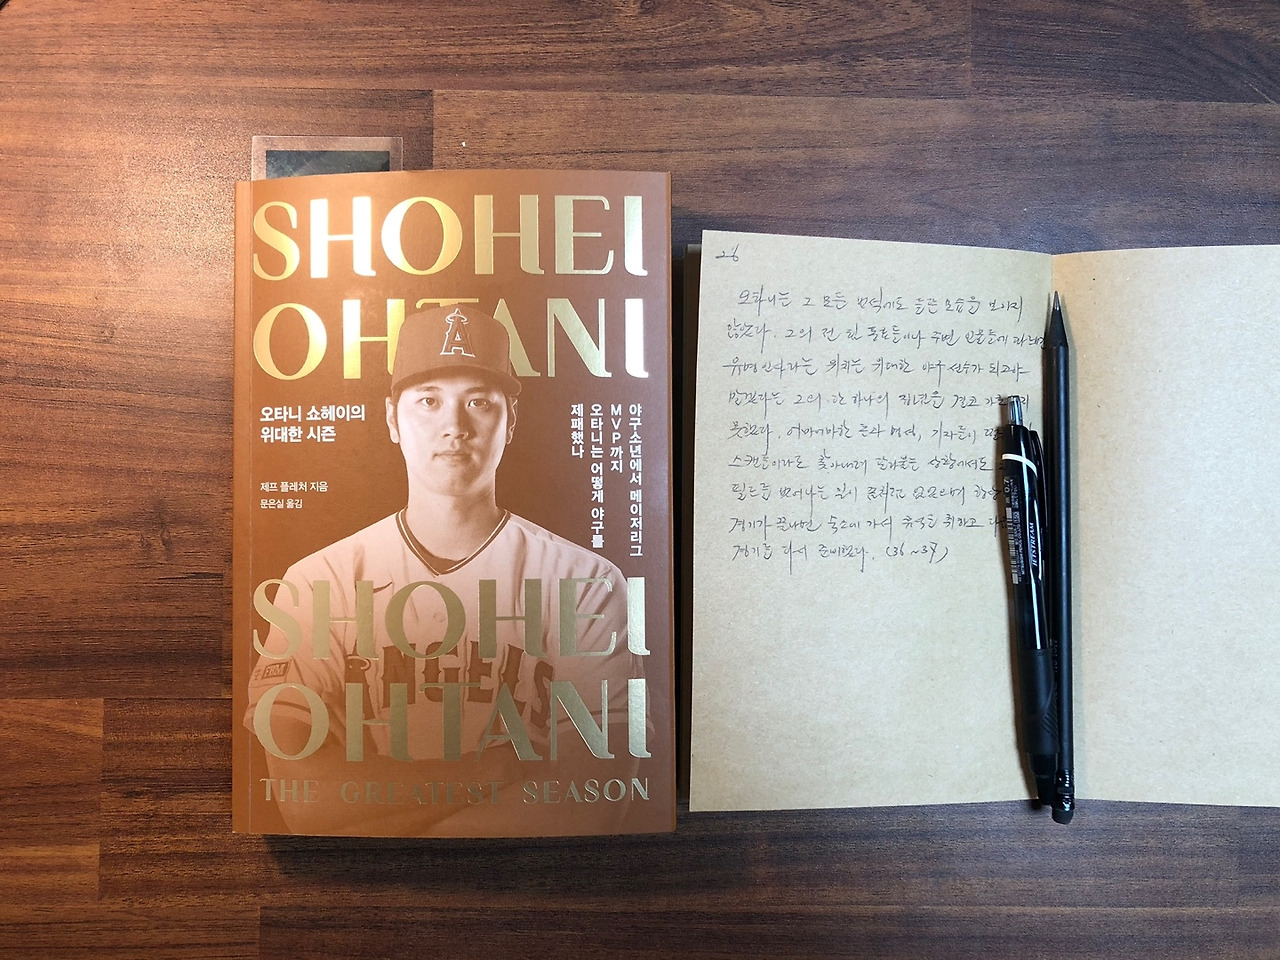 SHOHEI
OHTANI
A
오타니 쇼헤이의
위대한 시즌
제프 플레처 지음
문은실 옮김
야구소년에서 메이저리그
MVP까지
오타니는 어떻게 야구를
제패했나
SHOHEI
OHTANI
ANGELS
THE GREATEST SEASON
26
오타니는 그 모든 것에도 들뜬 모습을 보이지
않았다. 그의 전 팀 동료들이나 주변 인물들에 따르면
유명 인사라는 위치는 위대한 야구 선수가 되고야
말겠다는 그의 단 하나의 집념을 결코
못했다. 어마어마한 돈과 명성, 기자들이
스캔들이라도 찾아내려 달라붙는 상황에서도
필드를 벗어나는 일이 없었으며
경기가 끝나면 숙소에 가서 휴식을 취하고 다음
경기를 다시 준비했다. (36~37)
JETSTREAM
0.7